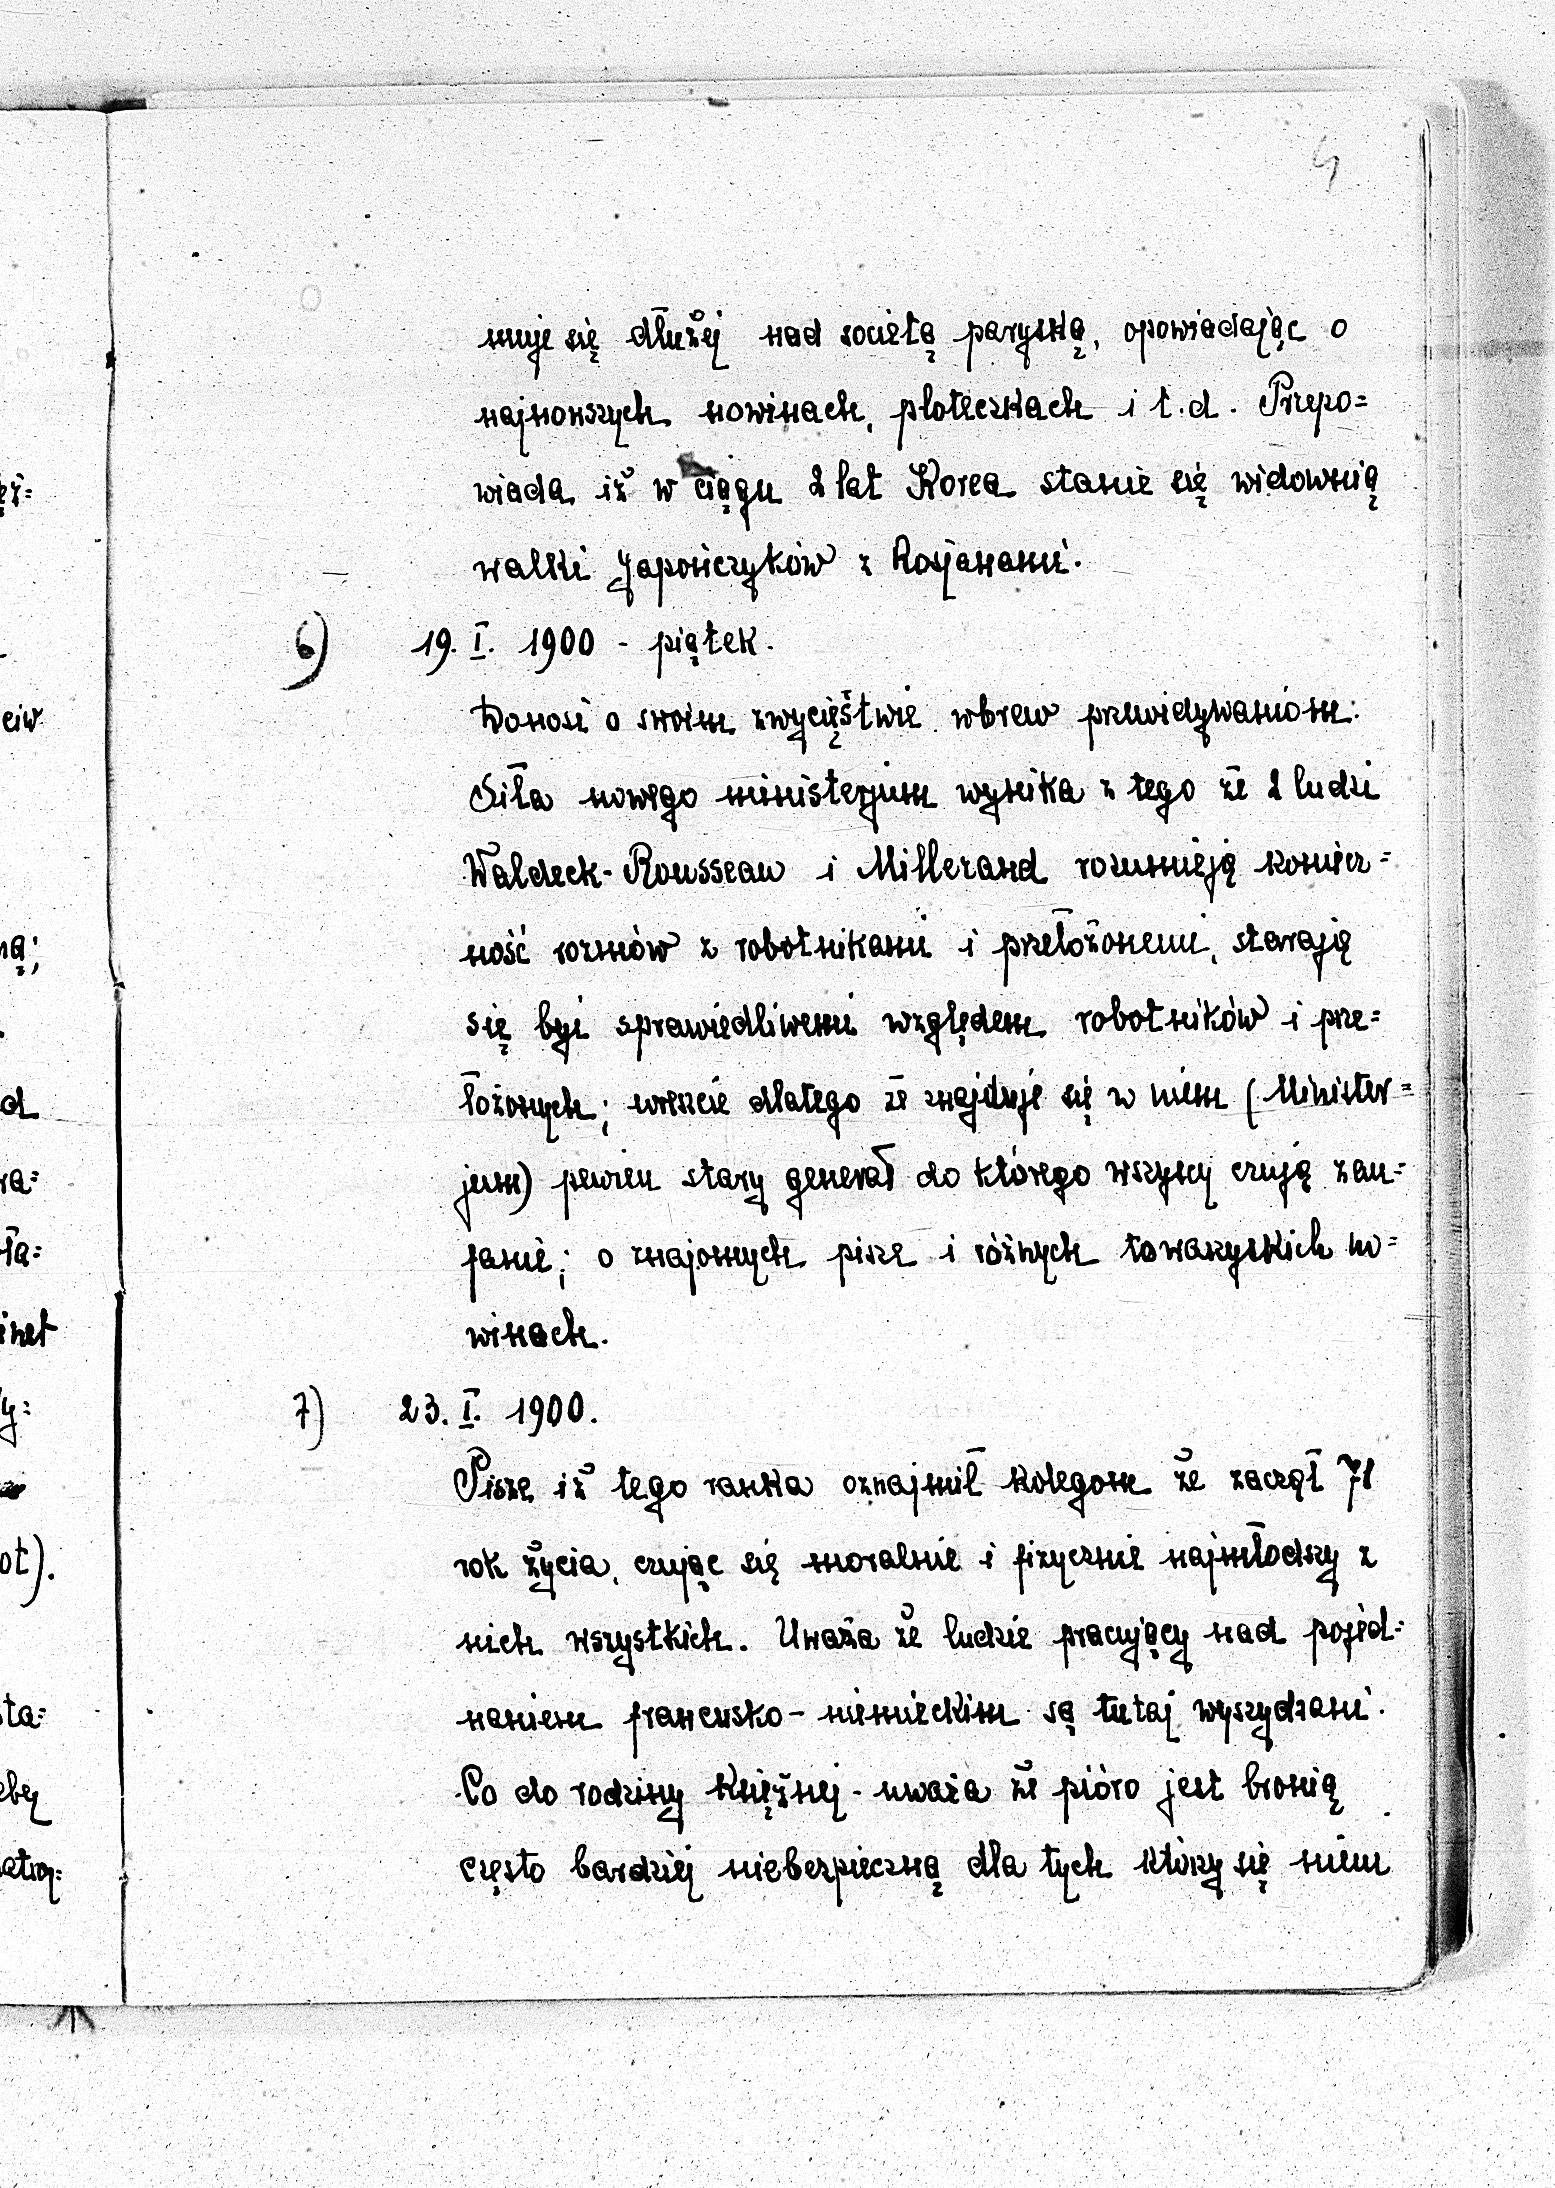 4
muje się dłużej nad societą paryską, opowiadając o
najnowszych nowinach, ploteczkach i t.d. Przepo=
wiada iż w ciągu 2 lat Korea stanie się widownią
walki Japończyków z Rosjanami.
6) 19. I. 1900 - piątek.
Donosi o swoim zwycięstwie wbrew przewidywaniom.
Siła nowego ministerjum wynika z tego że 2 ludzi
Waldeck-Rousseau i Millerand rozumieją koniecz=
ność rozmów z robotnikami i przełożonemi, starają
się być sprawiedliwemi względem robotników i prze=
łożonych; wreszcie dlatego że znajduje się w niem (Minister=
jum) pewien stary generał do którego wszyscy czują zau=
fanie; o znajomych pisze i różnych towarzyskich no=
winach.
7) 23. I. 1900.
Pisze iż tego ranka oznajmił kolegom że zaczął 71
rok życia, czując się moralnie i fizycznie najmłodszy z
nich wszystkich. Uważa że ludzie pracujący nad pojed=
naniem francusko-niemieckim są tutaj wyszydzani.
Co do rodziny Księżnej - uważa że pióro jest bronią
często bardziej niebezpieczną dla tych którzy się niem